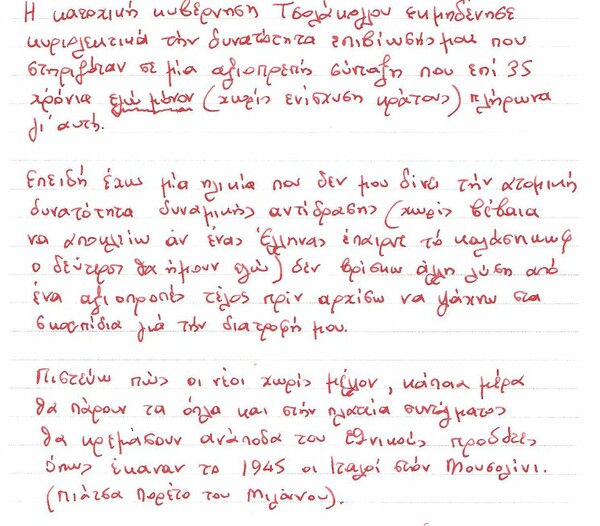 Η κατοχική κυβέρνηση Τσολάκογλου εκμηδένησε
κυριολεκτικά την δυνατότητα επιβίωσής μου που
στηριζόταν σε μία αξιοπρεπή σύνταξη που επί 35
χρόνια εγώ μόνον (χωρίς ενίσχυση κράτους) πλήρωνα
γι' αυτή.
Επειδή έχω μία ηλικία που δεν μου δίνει την ατομική
δυνατότητα δυναμικής αντίδρασης (χωρίς βέβαια
να αποκλείω αν ένας Έλληνας έπαιρνε το καλάσηκωφ
ο δεύτερος θα ήμουν εγώ) δεν βρίσκω άλλη λύση από
ένα αξιοπρεπές τέλος πρίν αρχίσω να ψάχνω στα
σκουπίδια γιά την διατροφή μου.
Πιστεύω πώς οι νέοι χωρίς μέλλον, κάποια μέρα
θα πάρουν τα όπλα και στην πλατεία συντάγματος
θα κρεμάσουν ανάποδα του εθνικούς προδότες
όπως έκαναν το 1945 οι Ιταλοί στόν Μουσολίνι.
(Πιάτσα Πορέτο του Μιλάνου).